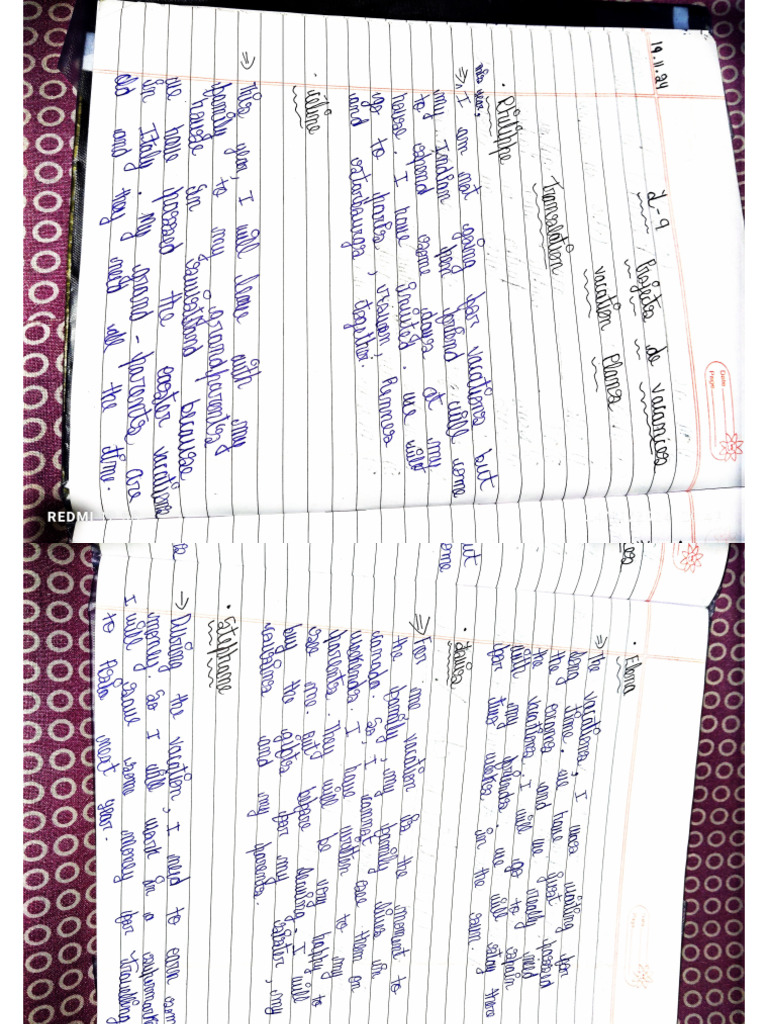 19.11.24
Date
Page
L-9 Projets de vacances
vacation Plans
Translation
• Philippe
this year,
⇒ ^ I am not going for vacations but
my Indian pen friend will come
to spend some days at my
house. I have invited. we will
go to paris, rouen, Rennes
and strasbourgs together.
• Céline
⇒ This year, I will leave with my
family to my grandparents
house in Switzerland because
we have passed the easter vacations
in Italy. my grand-parents are
old and they need all the time.
REDMI
• Elena
⇒ The vacations, I was waiting for
long time. we have just passed
the exames and we really need
the vacations. I will go to spain
with my friends. we will stay there
for two weekes in the sun.
• Louisa
⇒ For me vacation is the moment to
the family. my family lives in
canada. So, I cannot see them on
weekends. I have written to my
parents. They will be very happy to
see me. But before leaving, I will
buy the gifts for my sister, my
cousines and my parents.
• Stephane
⇒ During the vacation, I need to earn som
money. So I will work in a supermark
I will save some money for Travelling
to Asia next year.